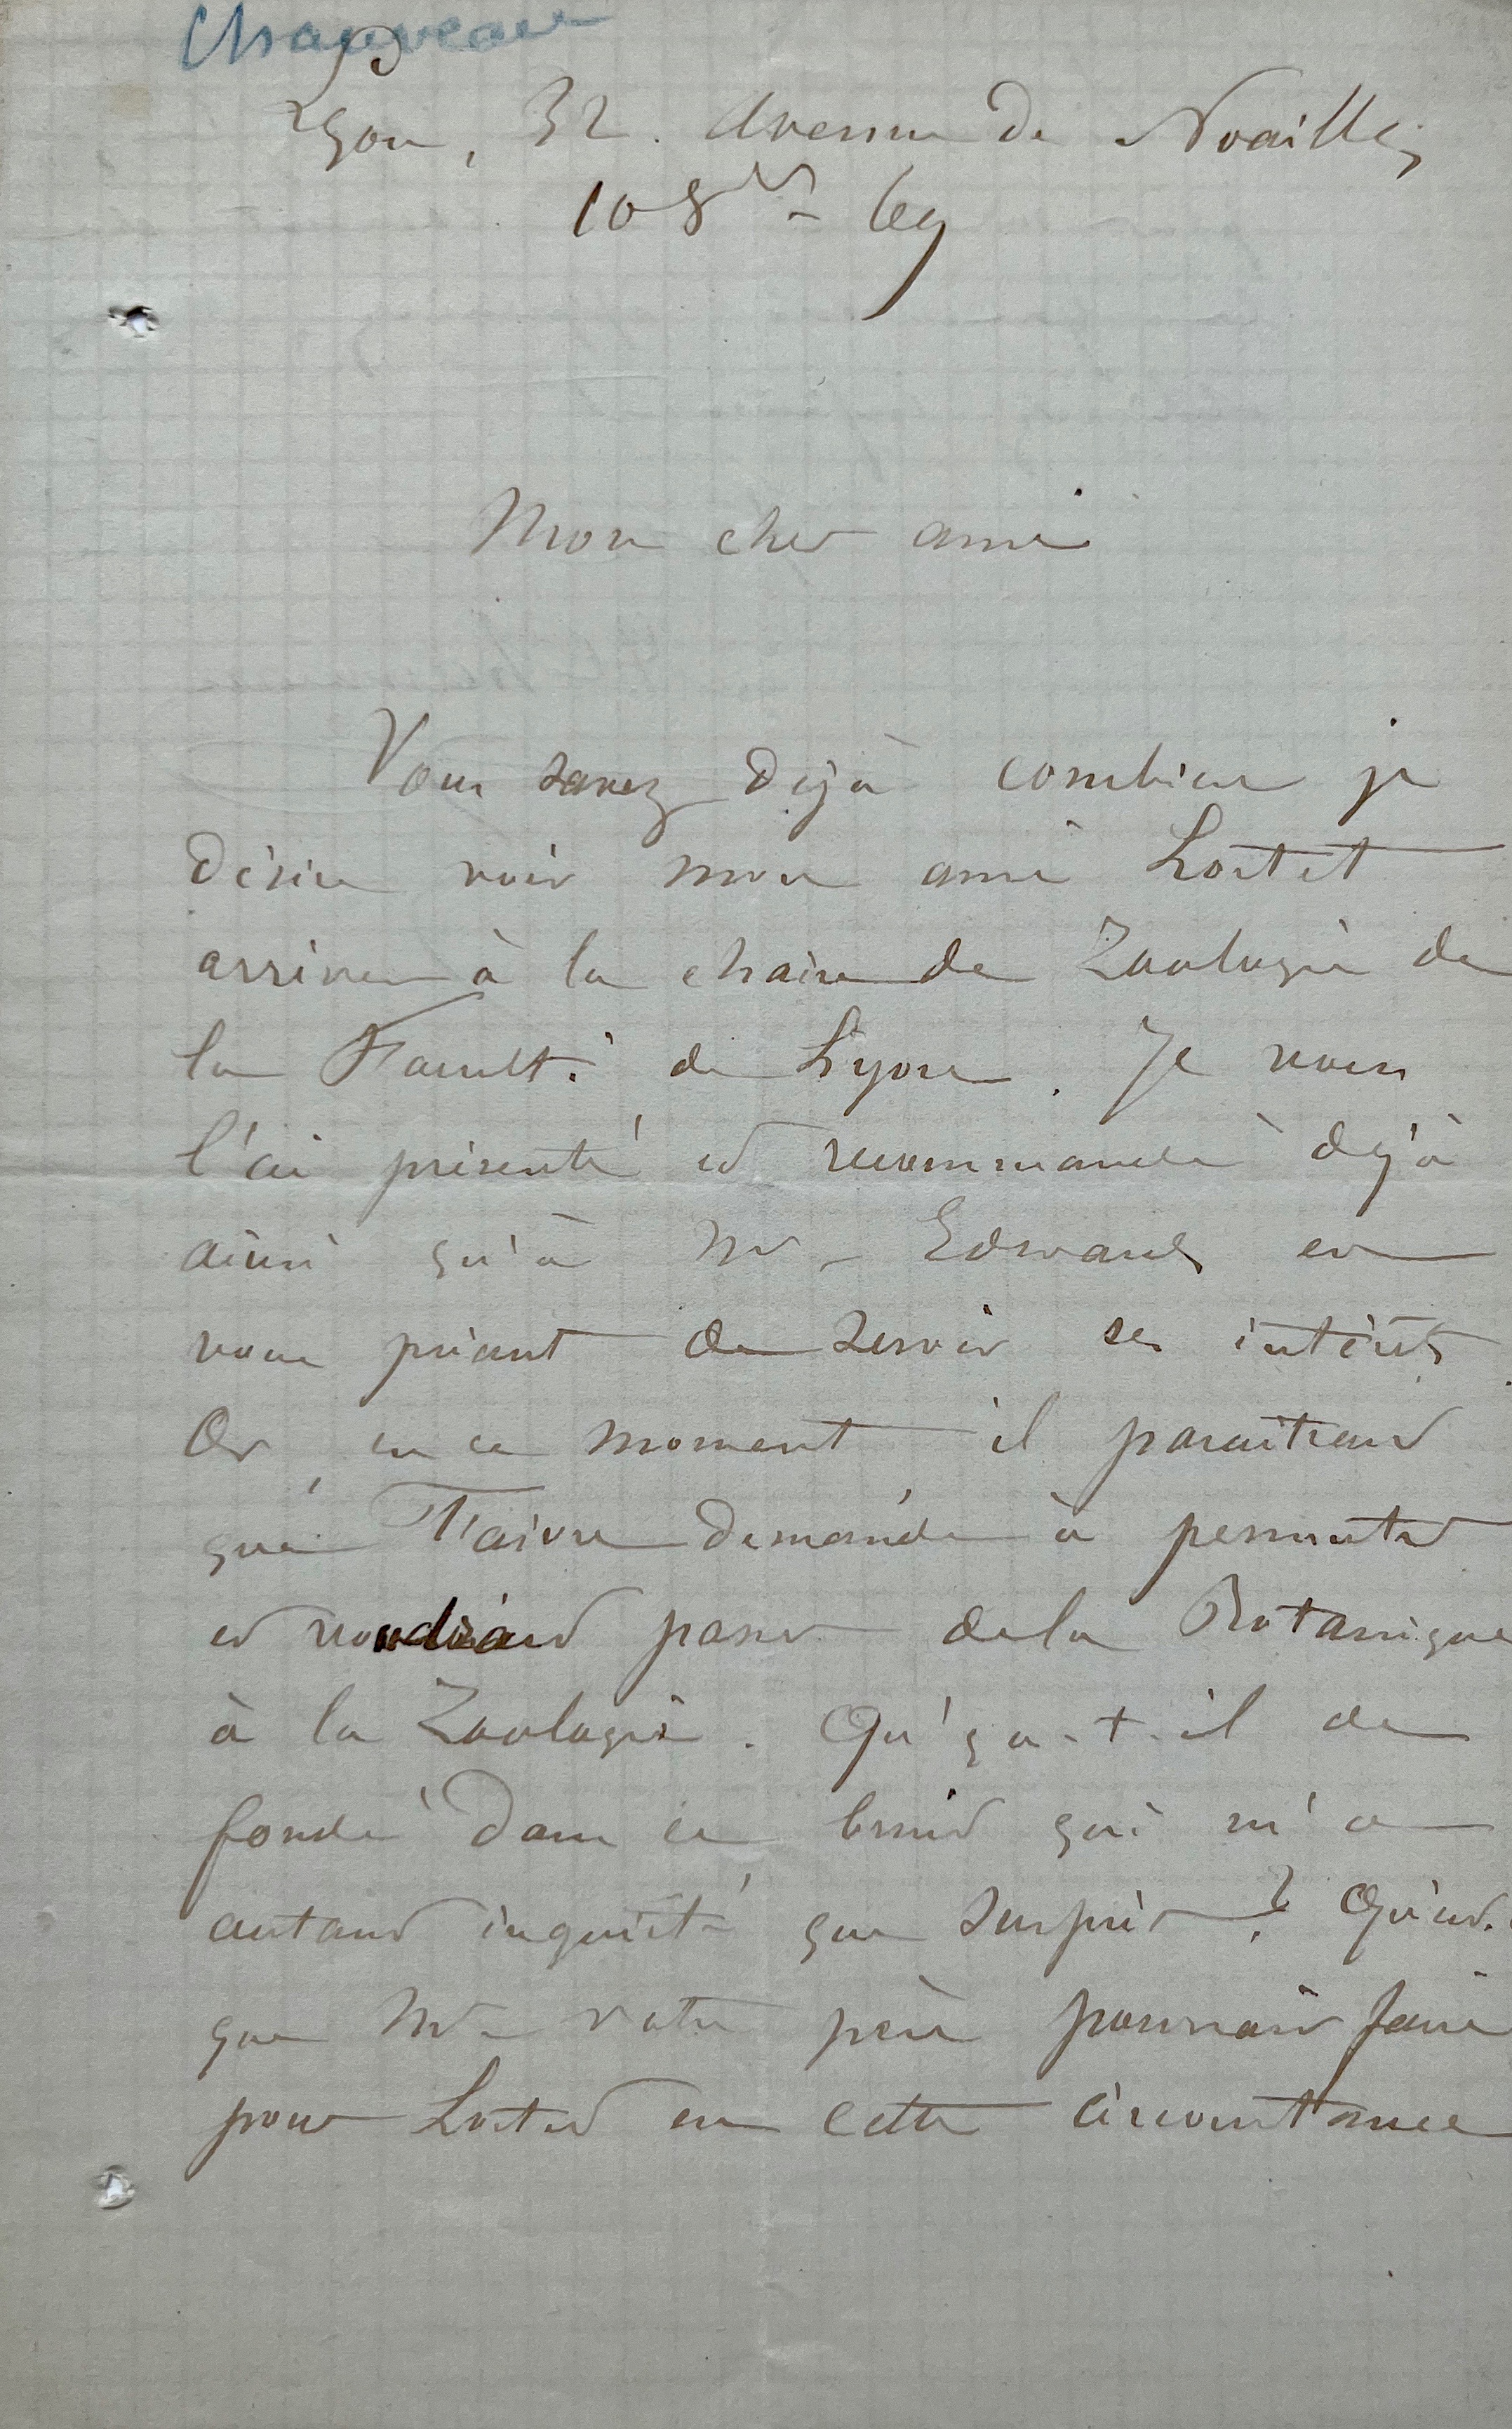 Chauveau
Lyon, 32. Avenue de Noailles
10 8bre - 69
Mon cher ami
Vous savez déjà combien je
désire voir mon ami Lortet
arriver à la chaire de Zoologie de
la Faculté de Lyon. Je vous
l'ai présenté et recommandé déjà
ainsi qu'à Mr Edwards en
vous priant de servir ses intérêts.
Or, en ce moment il paraîtrait
que Faivre demande à permuter
et voudrait passer de la Botanique
à la Zoologie. Qu'y a-t-il de
fondé dans ce bruit qui m'a
autant inquiété que surpris? Qu'est-ce
que Mr votre père pourrait faire
pour Lortet en cette circonstance